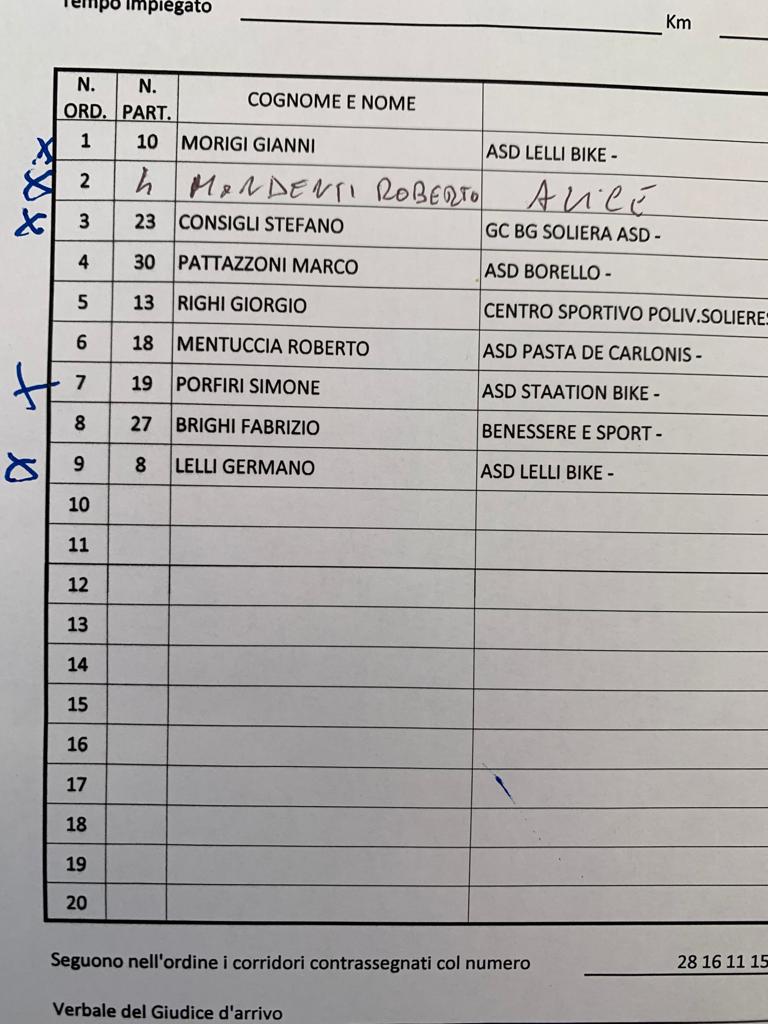 Tempo Impiegato Km
N. ORD. N. PART. COGNOME E NOME
1 10 MORIGI GIANNI ASD LELLI BIKE -
2 ROBERTO
3 23 CONSIGLI STEFANO GC BG SOLIERA ASD -
4 30 PATTAZZONI MARCO ASD BORELLO -
5 13 RIGHI GIORGIO CENTRO SPORTIVO POLIV.SOLIERES
6 18 MENTUCCIA ROBERTO ASD PASTA DE CARLONIS -
7 19 PORFIRI SIMONE ASD STAATION BIKE -
8 27 BRIGHI FABRIZIO BENESSERE E SPORT -
9 8 LELLI GERMANO ASD LELLI BIKE -
10
11
12
13
14
15
16
17
18
19
20
Seguono nell'ordine i corridori contrassegnati col numero 28 16 11 15
Verbale del Giudice d'arrivo